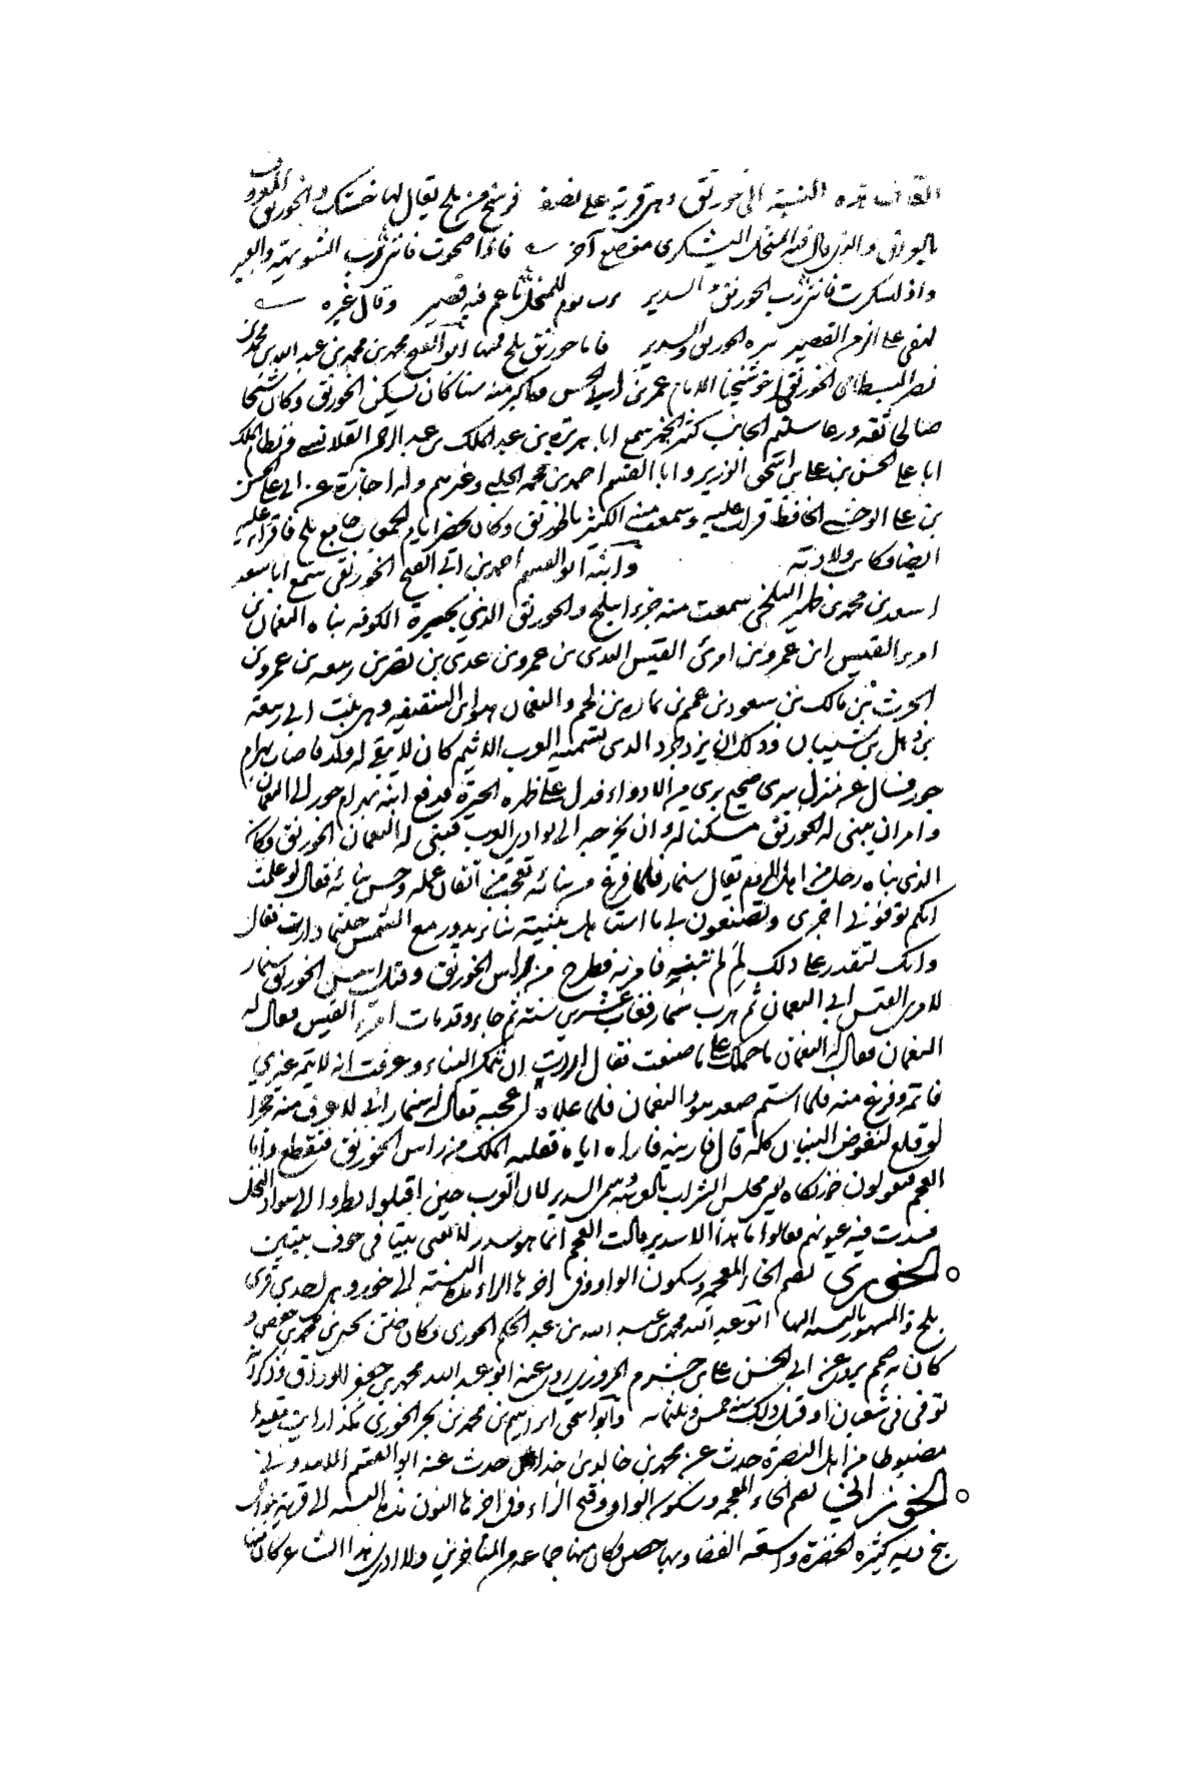 القاف هذه النسبة الى خورنق وهي قرية على نصف فرسخ من بلخ يقال لها خبنك والخورنق المعروف
بالعراق والذي قال فيه المنخل اليشكري مقطع آخر فاذا صحوت فانني رب الشويهة والبعير
واذا سكرت فانني رب الخورنق والسدير يوم للمنخل ناعم فيه قصير وقال غيره
الخورنق والسدير فاما خورنق بلخ فمنها ابو الفتح محمد بن محمد بن عبد الله بن محمد بن
نصر البسطامي الخورنقي اخو شيخنا الامام عمر بن ابي الحسن وهو اكبر منه سنا كان يسكن الخورنق وكان شيخا
صالحا ثقة ورعا سليم الجانب كثير الخير سمع ابا هريرة بن عبد الملك بن عبد الرحمن القلانسي ونظام الملك
ابا علي الحسن بن علي بن اسحق الوزير وابا القسم احمد بن محمد الخليلي وغيرهم وله اجازة عن ابي علي الحسن
بن علي الوخشي الحافظ قرات عليه وسمعت منه الكثير بالخورنق وكان يحضر ايام الجمعات جامع بلخ فاقرا عليه
ايضا وكانت ولادته وابنه ابو القسم احمد بن ابي الفتح الخورنقي سمع ابا سعد
اسعد بن محمد بن ظهير البلخي سمعت منه جزءا ببلخ والخورنق الذي بحيرة الكوفة بناه النعمان بن
امرئ القيس ابن عمرو بن امرئ القيس البدي بن عمرو بن عدي بن نصر بن ربيعة بن عمرو بن
الحرث بن مالك بن سعود بن عمم بن نمارة بن لخم والنعمان هو ابن الشقيقة وهي بنت ابي ربيعة
بن ذهل بن شيبان وذلك ان يزدجرد الذي تسميه العرب الاثيم كان لا يبقى له ولد بهرام
جور فسال عن منزل بري صحيح بري من الادواء فدل على ظهر الحيرة فدفع ابنه بهرام جور الى النعمان
وامر ان يبنى له الخورنق مسكنا له وان يخرجه الى بوادي العرب فبنى له النعمان الخورنق وكان
الذي بناه رجل من اهل الروم يقال سنمار فلما فرغ من بنائه تعجب من اتقان عمله وحسن بنائه فقال لو علمت
انكم توفوني اجري وتصنعون بي ما انا اهله بنيته بناء يدور مع الشمس حيثما دارت فقال
وانك لتقدر على ذلك لم لم تبنيه فامر به فطرح من راس الخورنق سنمار
لامرئ القيس ابي النعمان ثم هرب سنمار فغاب عشرين سنة ثم جاء وقد مات امرئ القيس فقال له
النعمان فقال له النعمان ما حملك على ما صنعت فقال اردت ان يتمكن البناء وعرفت انه لا يتمه غيري
فاتمه وفرغ منه فلما استتم صعد هو والنعمان فلما علاه اعجبه فقال له سنمار اني لاعرف منه حجرا
لو قلع لتقوض البنيان كله قال فارينيه فاراه اياه فقلبه الملك من راس الخورنق فتقطع واما
العجم فيقولون خرنكاه يعني مجلس الشراب بالعربية وسمي السدير لان العرب حين اقبلوا نظروا الى سواد النخل
فسدرت فيه عيونهم فقالوا ما هذا الا سدير وقالت العجم انما هو سدير لانه يعني بيتا في جوف بيتين
الخوري بضم الخاء المعجمة وسكون الواو وفي اخرها الراء هذه النسبة الى خور وهي احدى قرى
بلخ والمشهور بالنسبة اليها ابو عبد الله محمد بن عبد الله بن عبد الحكم الخوري وكان ختن يحيى بن محمد بن حفص و
كان به صمم يروي عن ابي الحسن علي بن خشرم المروزي روى عنه ابو عبد الله محمد بن جعفر الوراق وذكر انه
توفي في شعبان او قبل ذلك سنة خمس وثلثمائة وابو اسحق ابراهيم بن محمد بن بحر الخوري هكذا رايت مقيدا
مضبوطا من اهل البصرة حدث عن محمد بن خالد بن خداش حدث عنه ابو القسم الابندوني
الخوزاني بضم الخاء المعجمة وسكون الواو وفتح الزاء وفي اخرها النون هذه النسبة الى قرية بنواحي
بنج ديه كثيرة الخضرة واسعة الفضاء وبها حصن وكان منها جماعة من المتاخرين ولا ادري هذا الشاعر كان منها